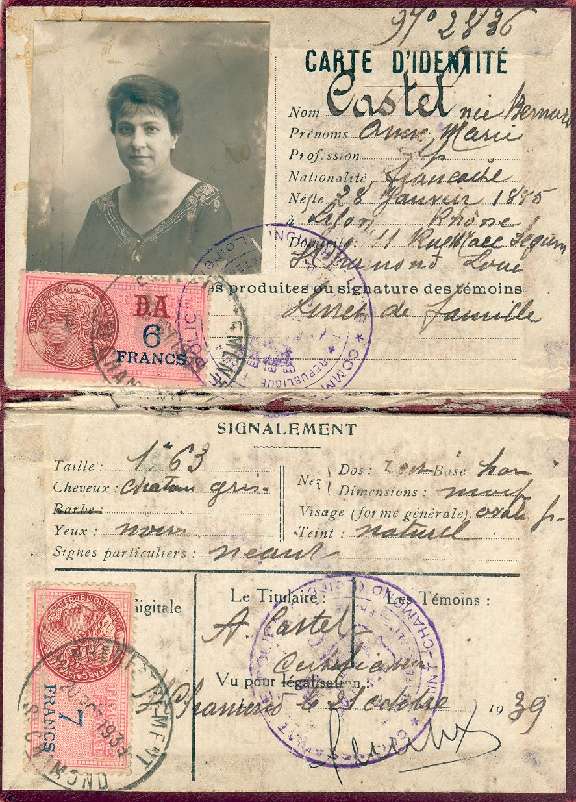 N° 2836
CARTE D'IDENTITÉ
Nom Castel née Bernard
Prénoms Anne Marie
Profession
Nationalité française
Né le 28 Janvier 1895
à Lyon Rhône
Domicile : 11 Rue Marc Seguin
St Chamond Loire
es produites ou signature des témoins
Livret de famille
BA
6
FRANCS
SIGNALEMENT
Taille : 1m63
Cheveux : chatain gris
Barbe :
Yeux : noirs
Signes particuliers : néant
Nez Dos : Base
Dimensions : moy
Visage (forme générale) ovale
Teint : naturel
Digitale
Le Titulaire :
Les Témoins :
A. Castel
Vu pour légalisation
St Chamond le 21 octobre 1939
7
FRANCS